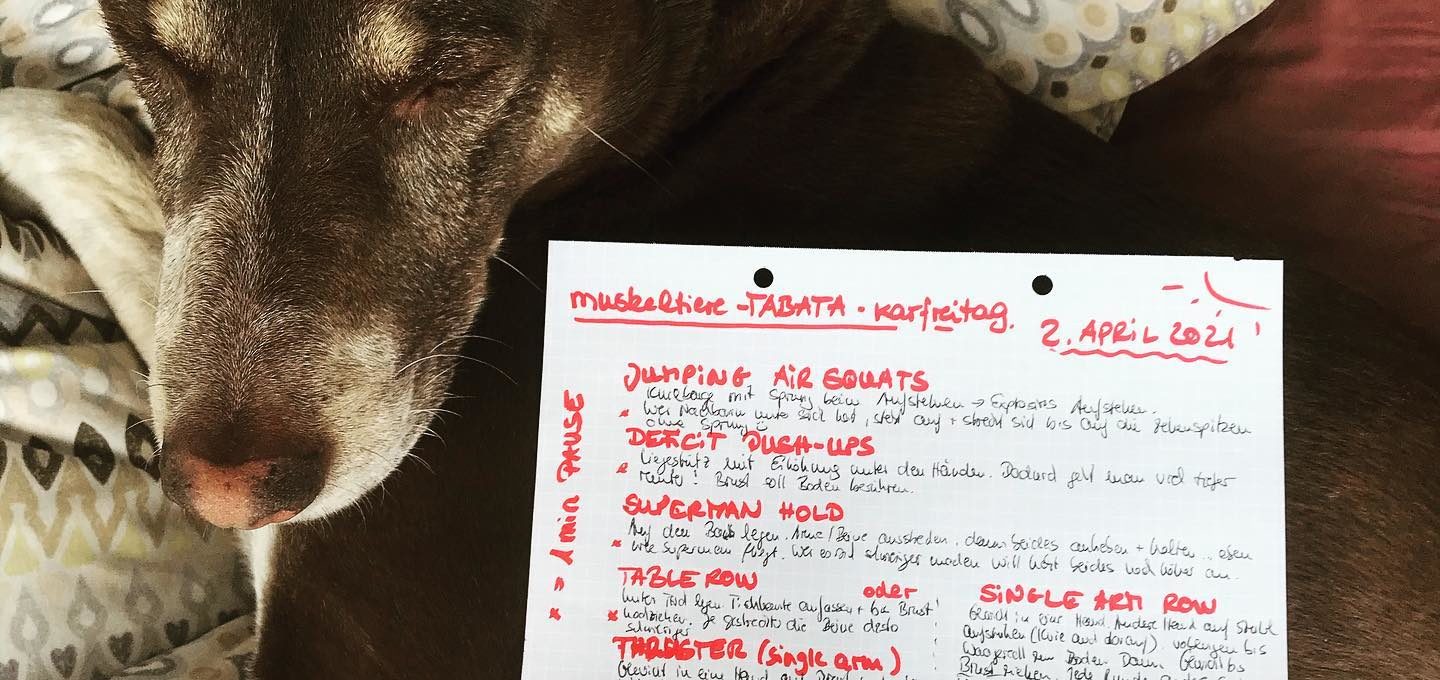 muskeltiere - TABATA - karfreitag.
2. APRiL 2021
* = 1 min PAUSE
JUMPiNG AiR SQUATS
Kniebeuge mit Sprung beim Aufstehen → Explosives Aufstehen.
* Wer Nachbarn unter sich hat, steht auf + streckt sich bis auf die Zehenspitzen
ohne Sprung
DEFiCiT PUSH-UPS
* Liegestütz mit Erhöhung unter den Händen. Dadurch geht man viel tiefer
runter! Brust soll Boden berühren.
SUPERMAN HOLD
Auf den Bauch legen. Arme/Beine ausstrecken, dann beides anheben + halten... eben
* wie Superman fliegt. Wer es sich schwieriger machen will hebt beides noch höher an.
TABLE ROW oder
unter Tisch legen. Tischkante anfassen + bis Brust
* hochziehen. Je gestreckter die Beine desto
schwieriger
SiNGLE ARM ROW
Gewicht in eine Hand. Andere Hand auf Stuhl
aufstützen (Knie auch darauf). vorbeugen bis
Waagerecht zum Boden. Dann Gewicht bis
Brust ziehen. Jede Runde
THRUSTER (single arm)
Gewicht in eine Hand